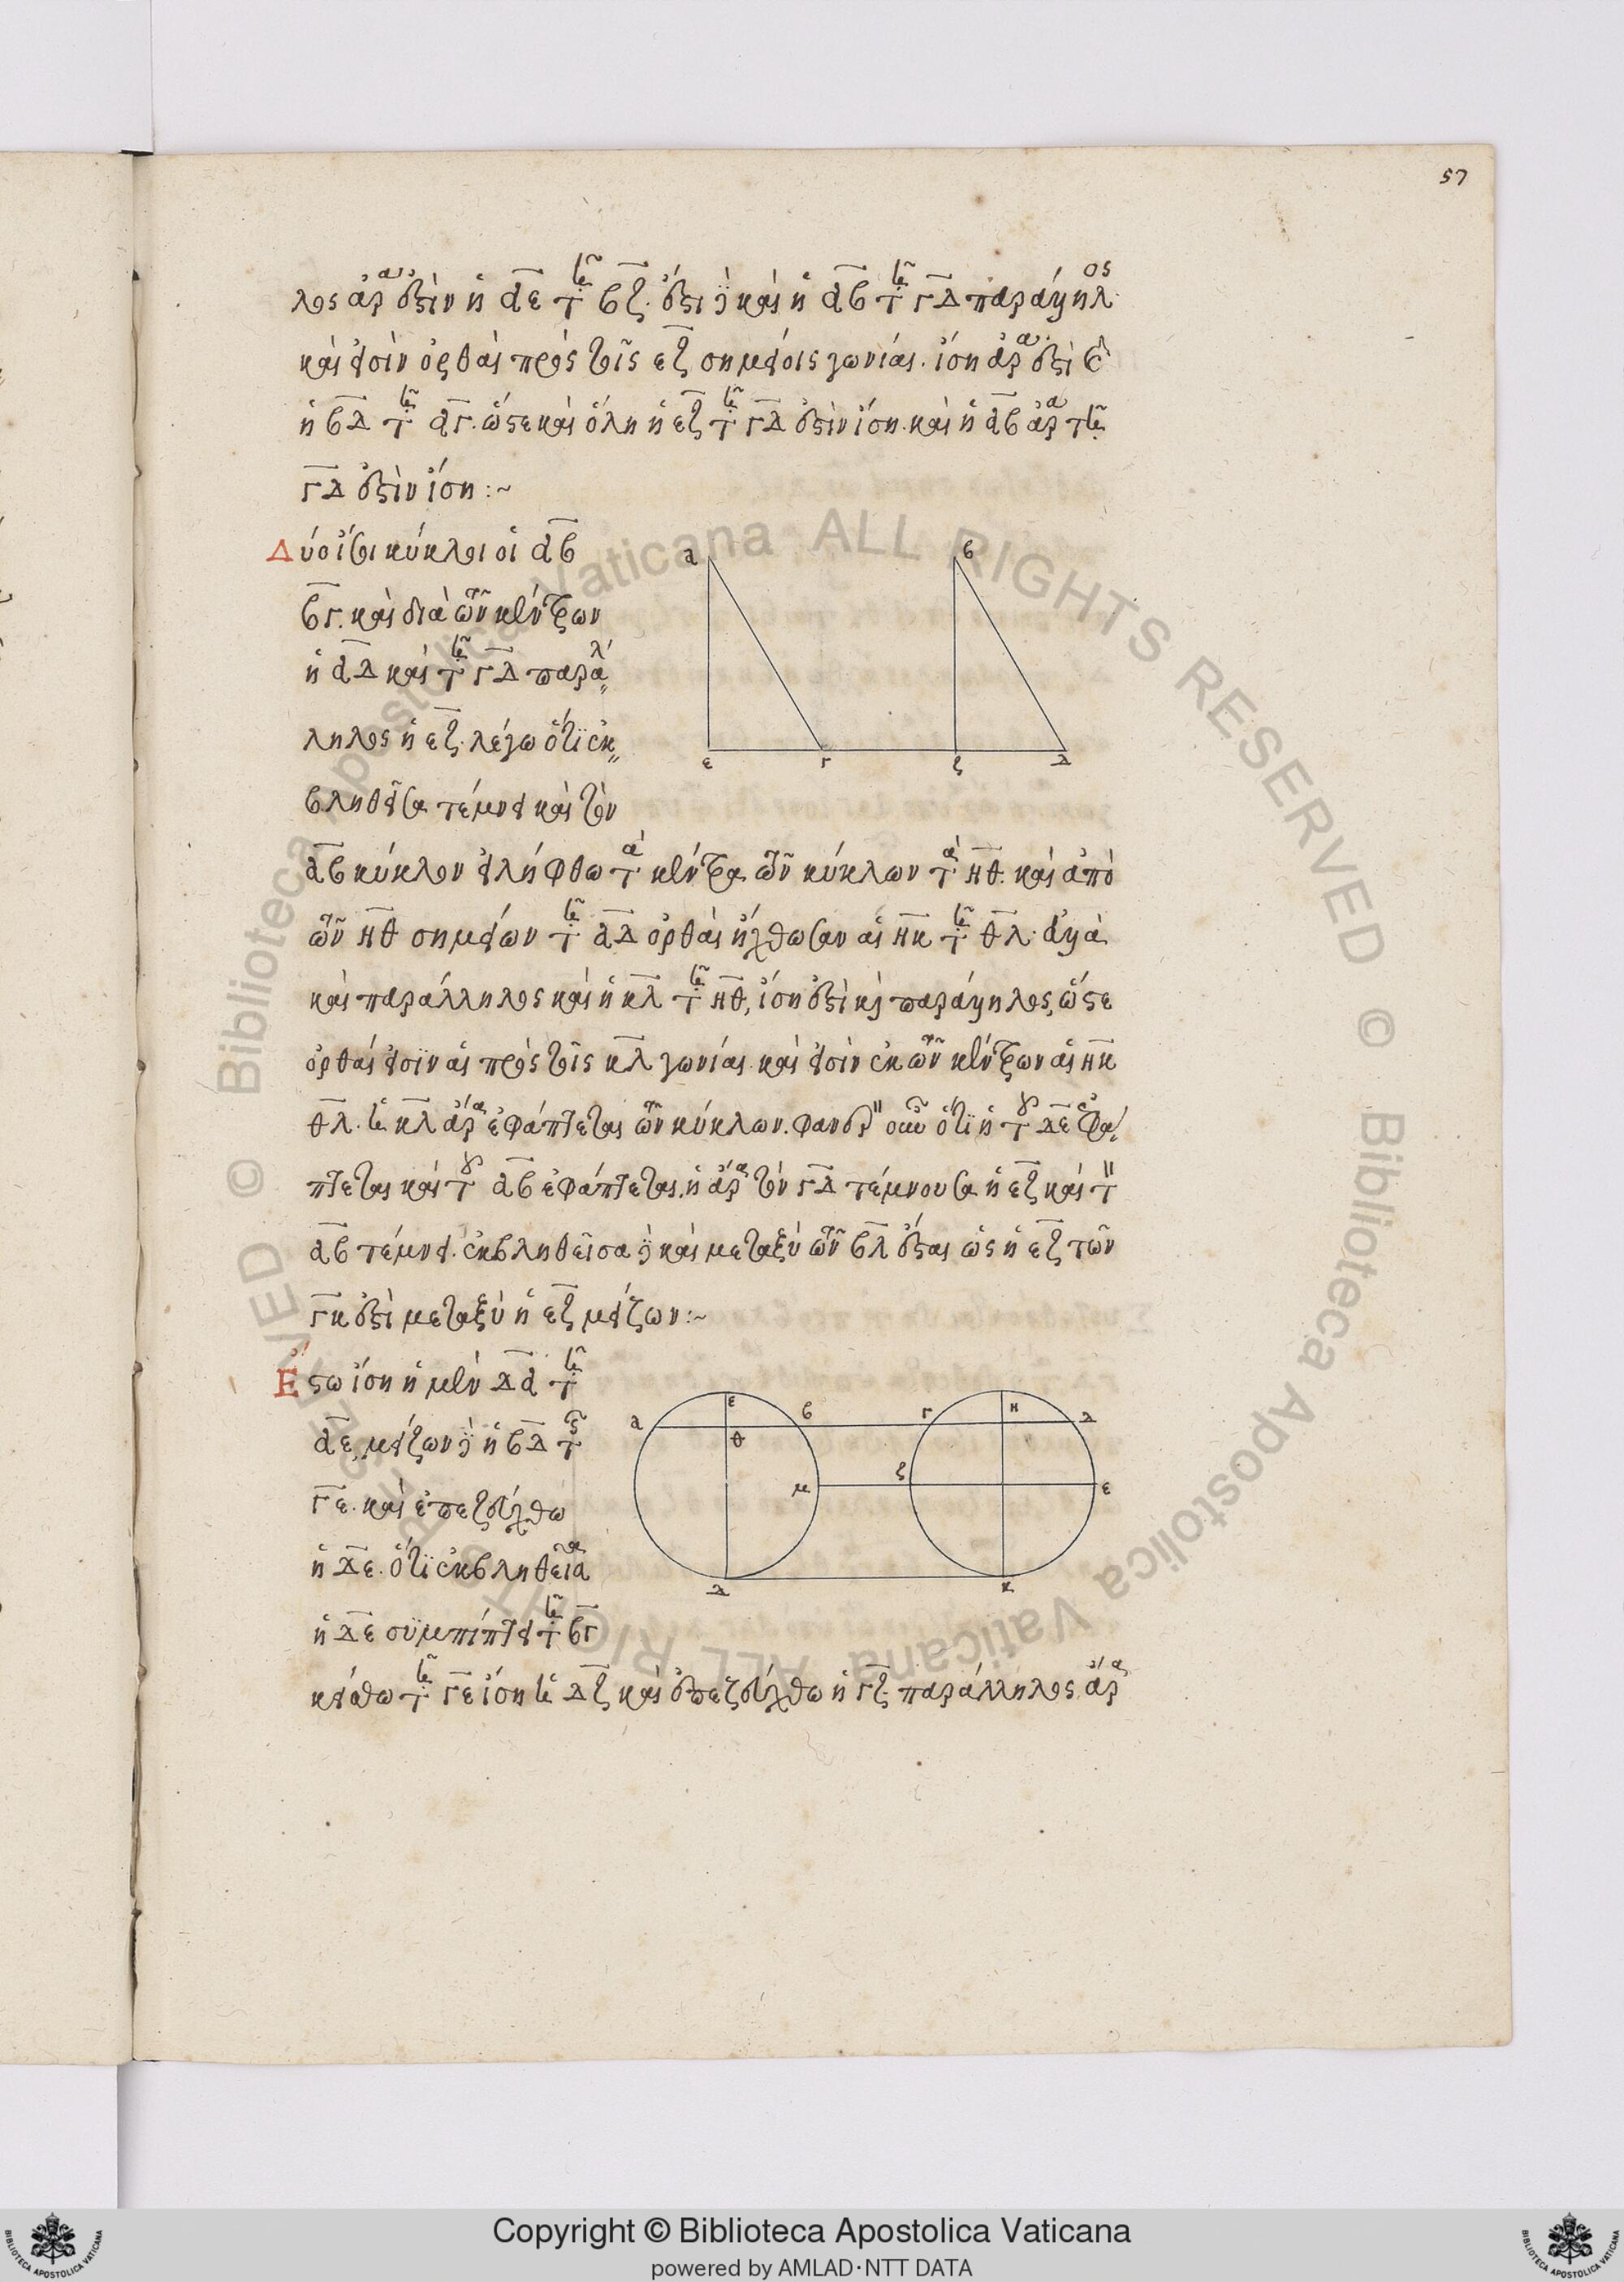 57
λος ἄρα ἐστὶν ἡ αε τῇ βζ. ἔστι δὲ καὶ ἡ αβ τῇ γδ παράλληλος
καὶ εἰσὶν ὀρθαὶ πρὸς τοῖς εζ σημείοις γωνίαι. ἴση ἄρα ἐστὶ
ἡ βδ τῇ αγ. ὥστε καὶ ὅλη ἡ εζ τῇ γδ ἐστὶν ἴση. καὶ ἡ αβ ἄρα τῇ
γδ ἐστὶν ἴση :~
Δύο ἴσοι κύκλοι οἱ αβ
βγ. καὶ διὰ τῶν κέντρων
ἡ αδ καὶ τῇ γδ παράλ
ληλος ἡ εζ. λέγω ὅτι ἐκ
βληθεῖσα τέμνει καὶ τὸν
αβ κύκλον εἰλήφθω τὰ κέντρα τῶν κύκλων τὰ ηθ. καὶ ἀπὸ
τῶν ηθ σημείων τῇ αδ ὀρθαὶ ἤχθωσαν αἱ ηκ τῇ θλ. ἀλλὰ
καὶ παράλληλος καὶ ἡ κλ τῇ ηθ, ἴση ἐστὶ καὶ παράλληλος, ὥστε
ὀρθαί εἰσιν αἱ πρὸς τοῖς κλ γωνίαι. καὶ εἰσὶν ἐκ τῶν κέντρων αἱ ηκ
θλ. ἡ κλ ἄρα ἐφάπτεται τῶν κύκλων. φανερὸν οὖν ὅτι ἡ τοῦ δε ἐφά
πτεται καὶ τοῦ αβ ἐφάπτεται. ἡ ἄρα τὸν γδ τέμνουσα ἡ εζ καὶ τὸν
αβ τέμνει. ἐκβληθεῖσα δὲ καὶ μεταξὺ τῶν βλ ἔσται ὡς ἡ εζ τῶν
γκ ἐστὶ μεταξὺ ἡ εζ μείζων :~
Ἔστω ἴση ἡ μὲν δα τῇ
αε, μείζων δὲ ἡ βδ τῆς
γε. καὶ ἐπεζεύχθω
ἡ δε. ὅτι ἐκβληθεῖσα
ἡ δε συμπίπτει τῇ βγ
κείσθω τῇ γε ἴση ἡ δζ καὶ ἐπεζεύχθω ἡ γζ. παράλληλος ἄρα
α β
ε γ ζ δ
α ε β γ η δ
θ
μ ζ ε
λ κ
Copyright © Biblioteca Apostolica Vaticana
powered by AMLAD·NTT DATA